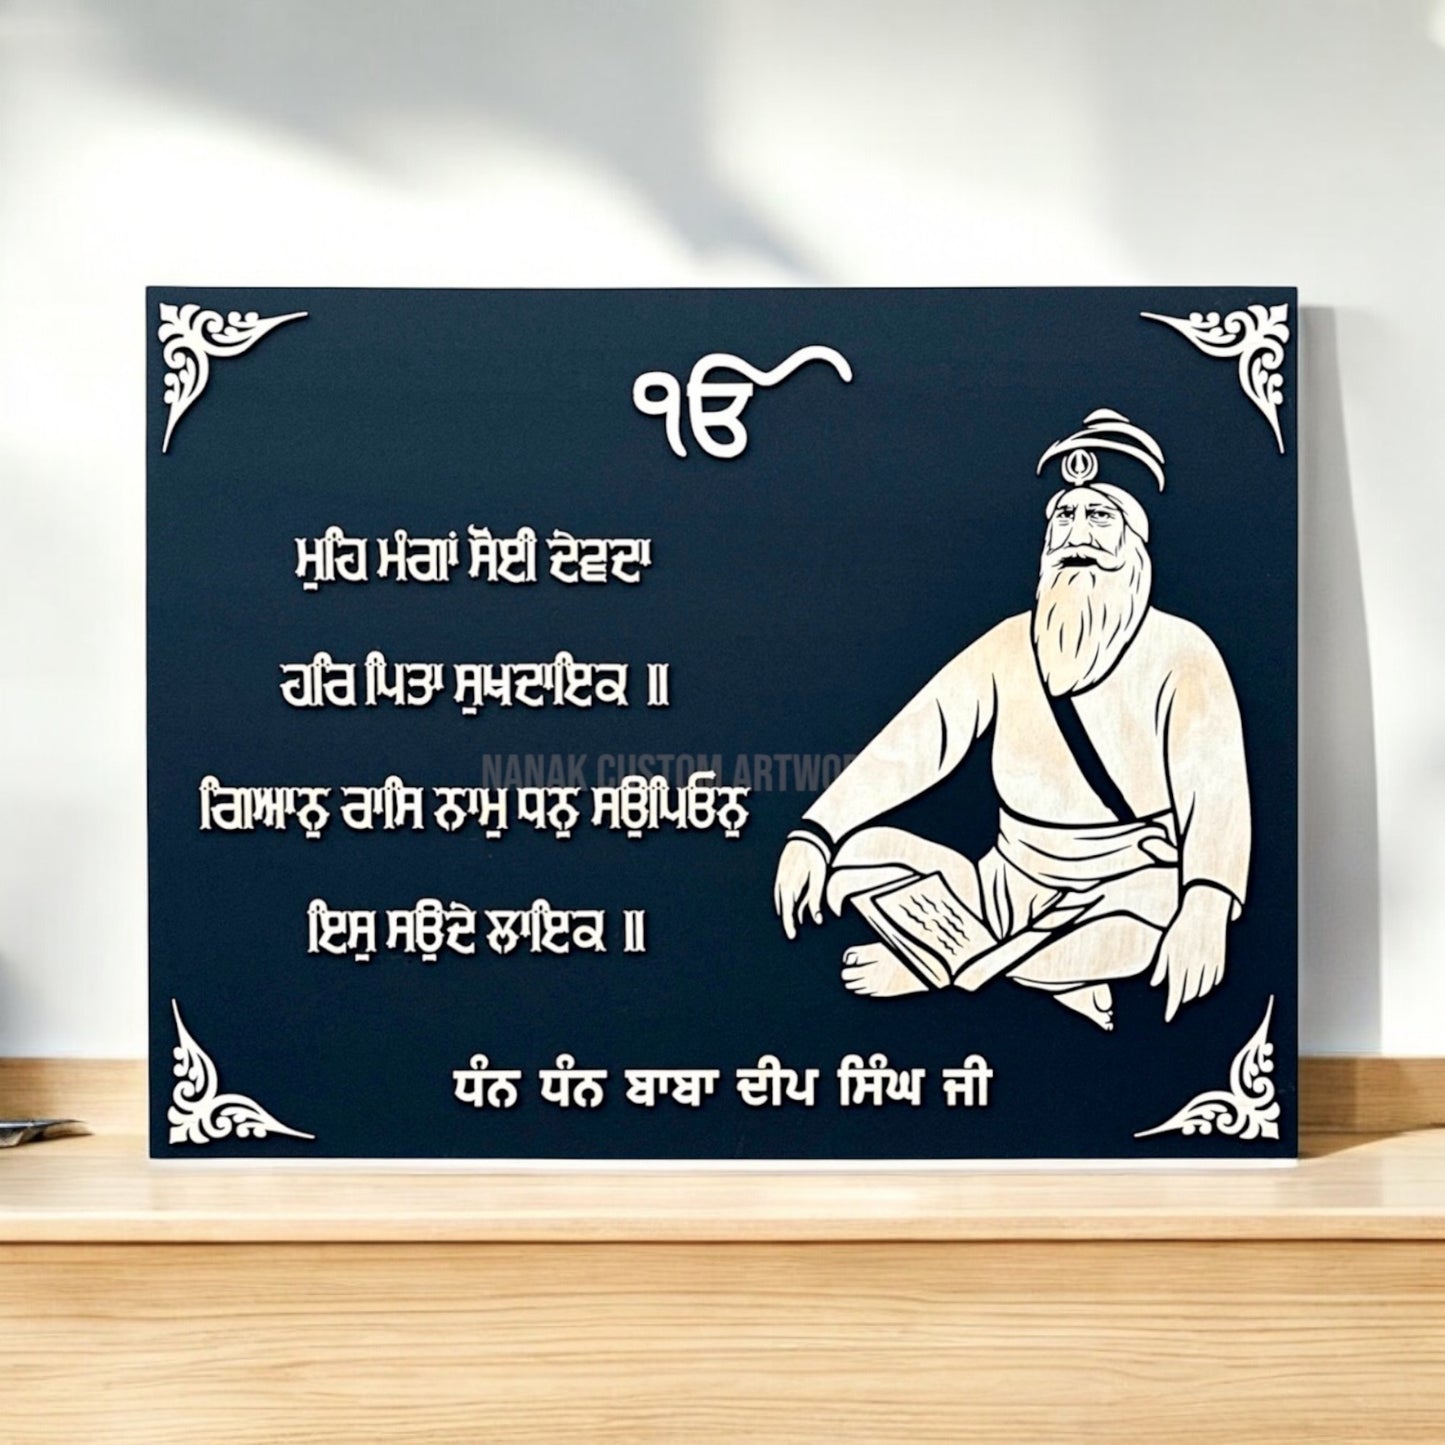 ੴ
ਮੁਹਿ ਮੰਗਾਂ ਸੋਈ ਦੇਵਦਾ
ਹਰਿ ਪਿਤਾ ਸੁਖਦਾਇਕ ॥
NANAK CUSTOM ARTWO
ਗਿਆਨੁ ਰਾਸਿ ਨਾਮੁ ਧਨੁ ਸਉਪਿਓਨੁ
ਇਸੁ ਸਉਦੇ ਲਾਇਕ ॥
ਧੰਨ ਧੰਨ ਬਾਬਾ ਦੀਪ ਸਿੰਘ ਜੀ